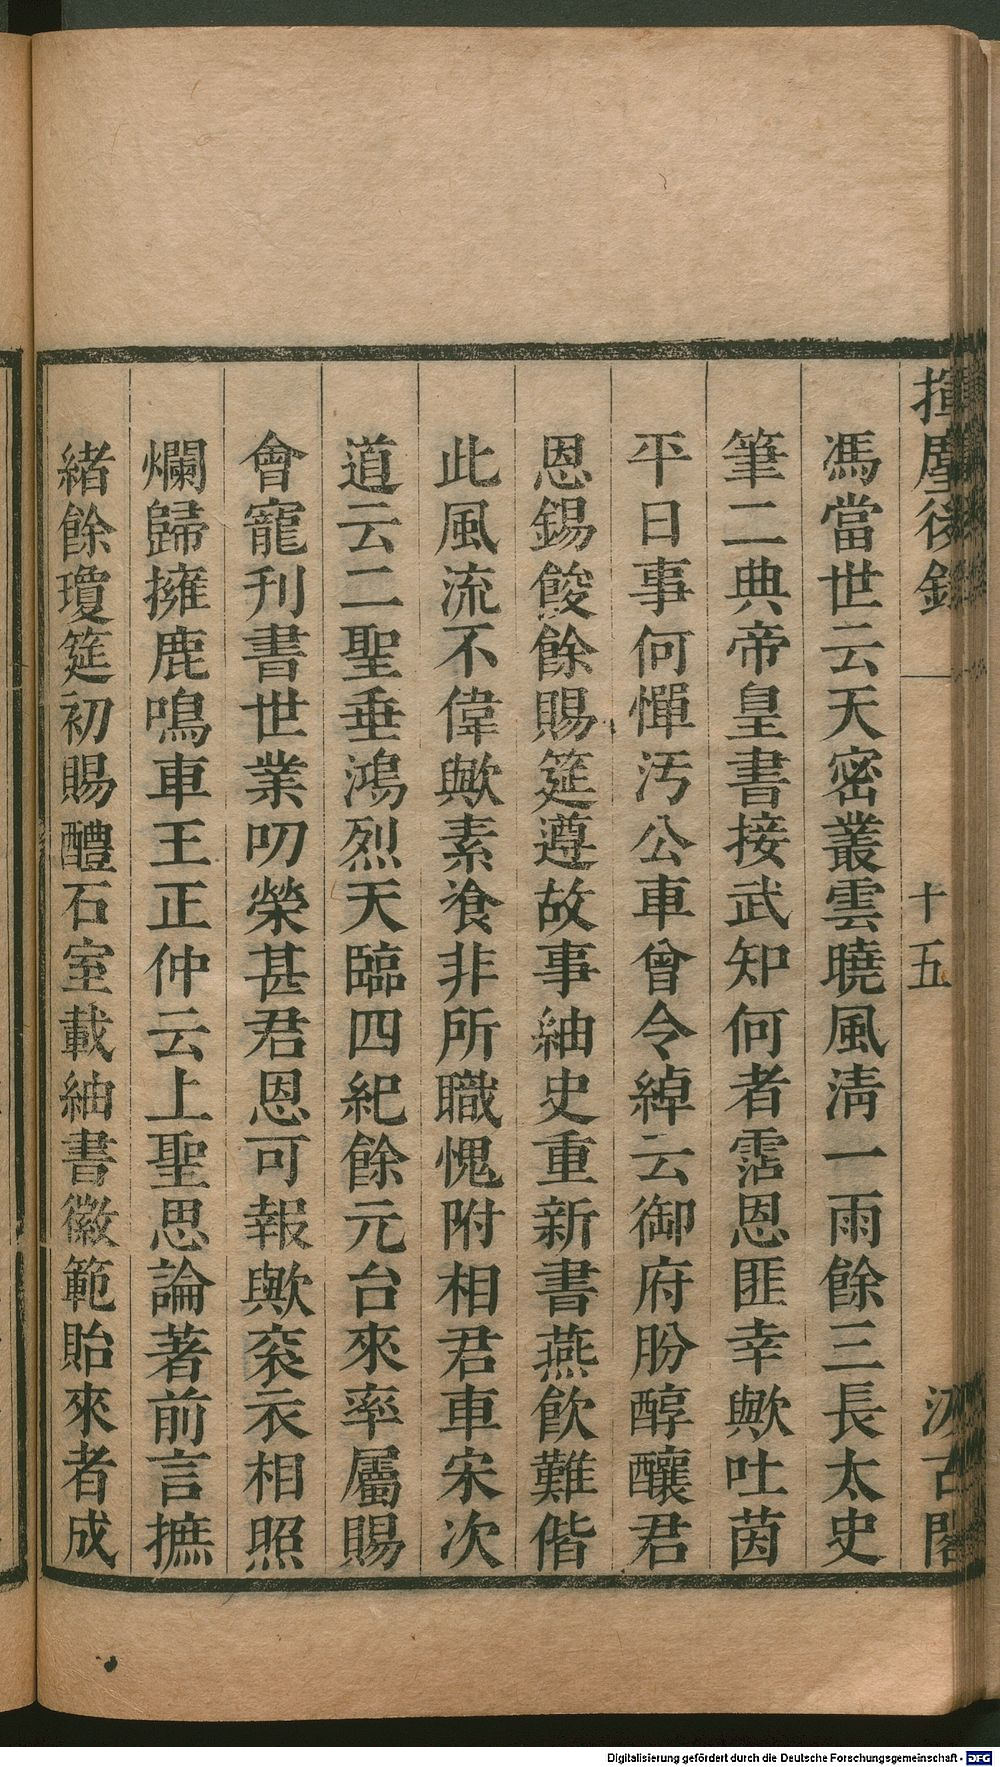 揮麈後錄
十五
汲古閣
馮當世云天密叢雲曉風淸一雨餘三長太史
筆二典帝皇書接武知何者霑恩匪幸歟吐茵
平日事何憚汚公車曾令綽云御府肦醇釀君
恩錫餕餘賜筵遵故事紬史重新書燕飮難偕
此風流不偉歟素飡非所職愧附相君車宋次
道云二聖垂鴻烈天臨四紀餘元台來率屬賜
會寵刋書世業叨榮甚君恩可報歟衮衣相照
爛歸擁鹿鳴車王正仲云上聖思論著前言摭
緖餘瓊筵初賜醴石室載紬書徽範貽來者成
Digitalisierung gefördert durch die Deutsche Forschungsgemeinschaft - DFG